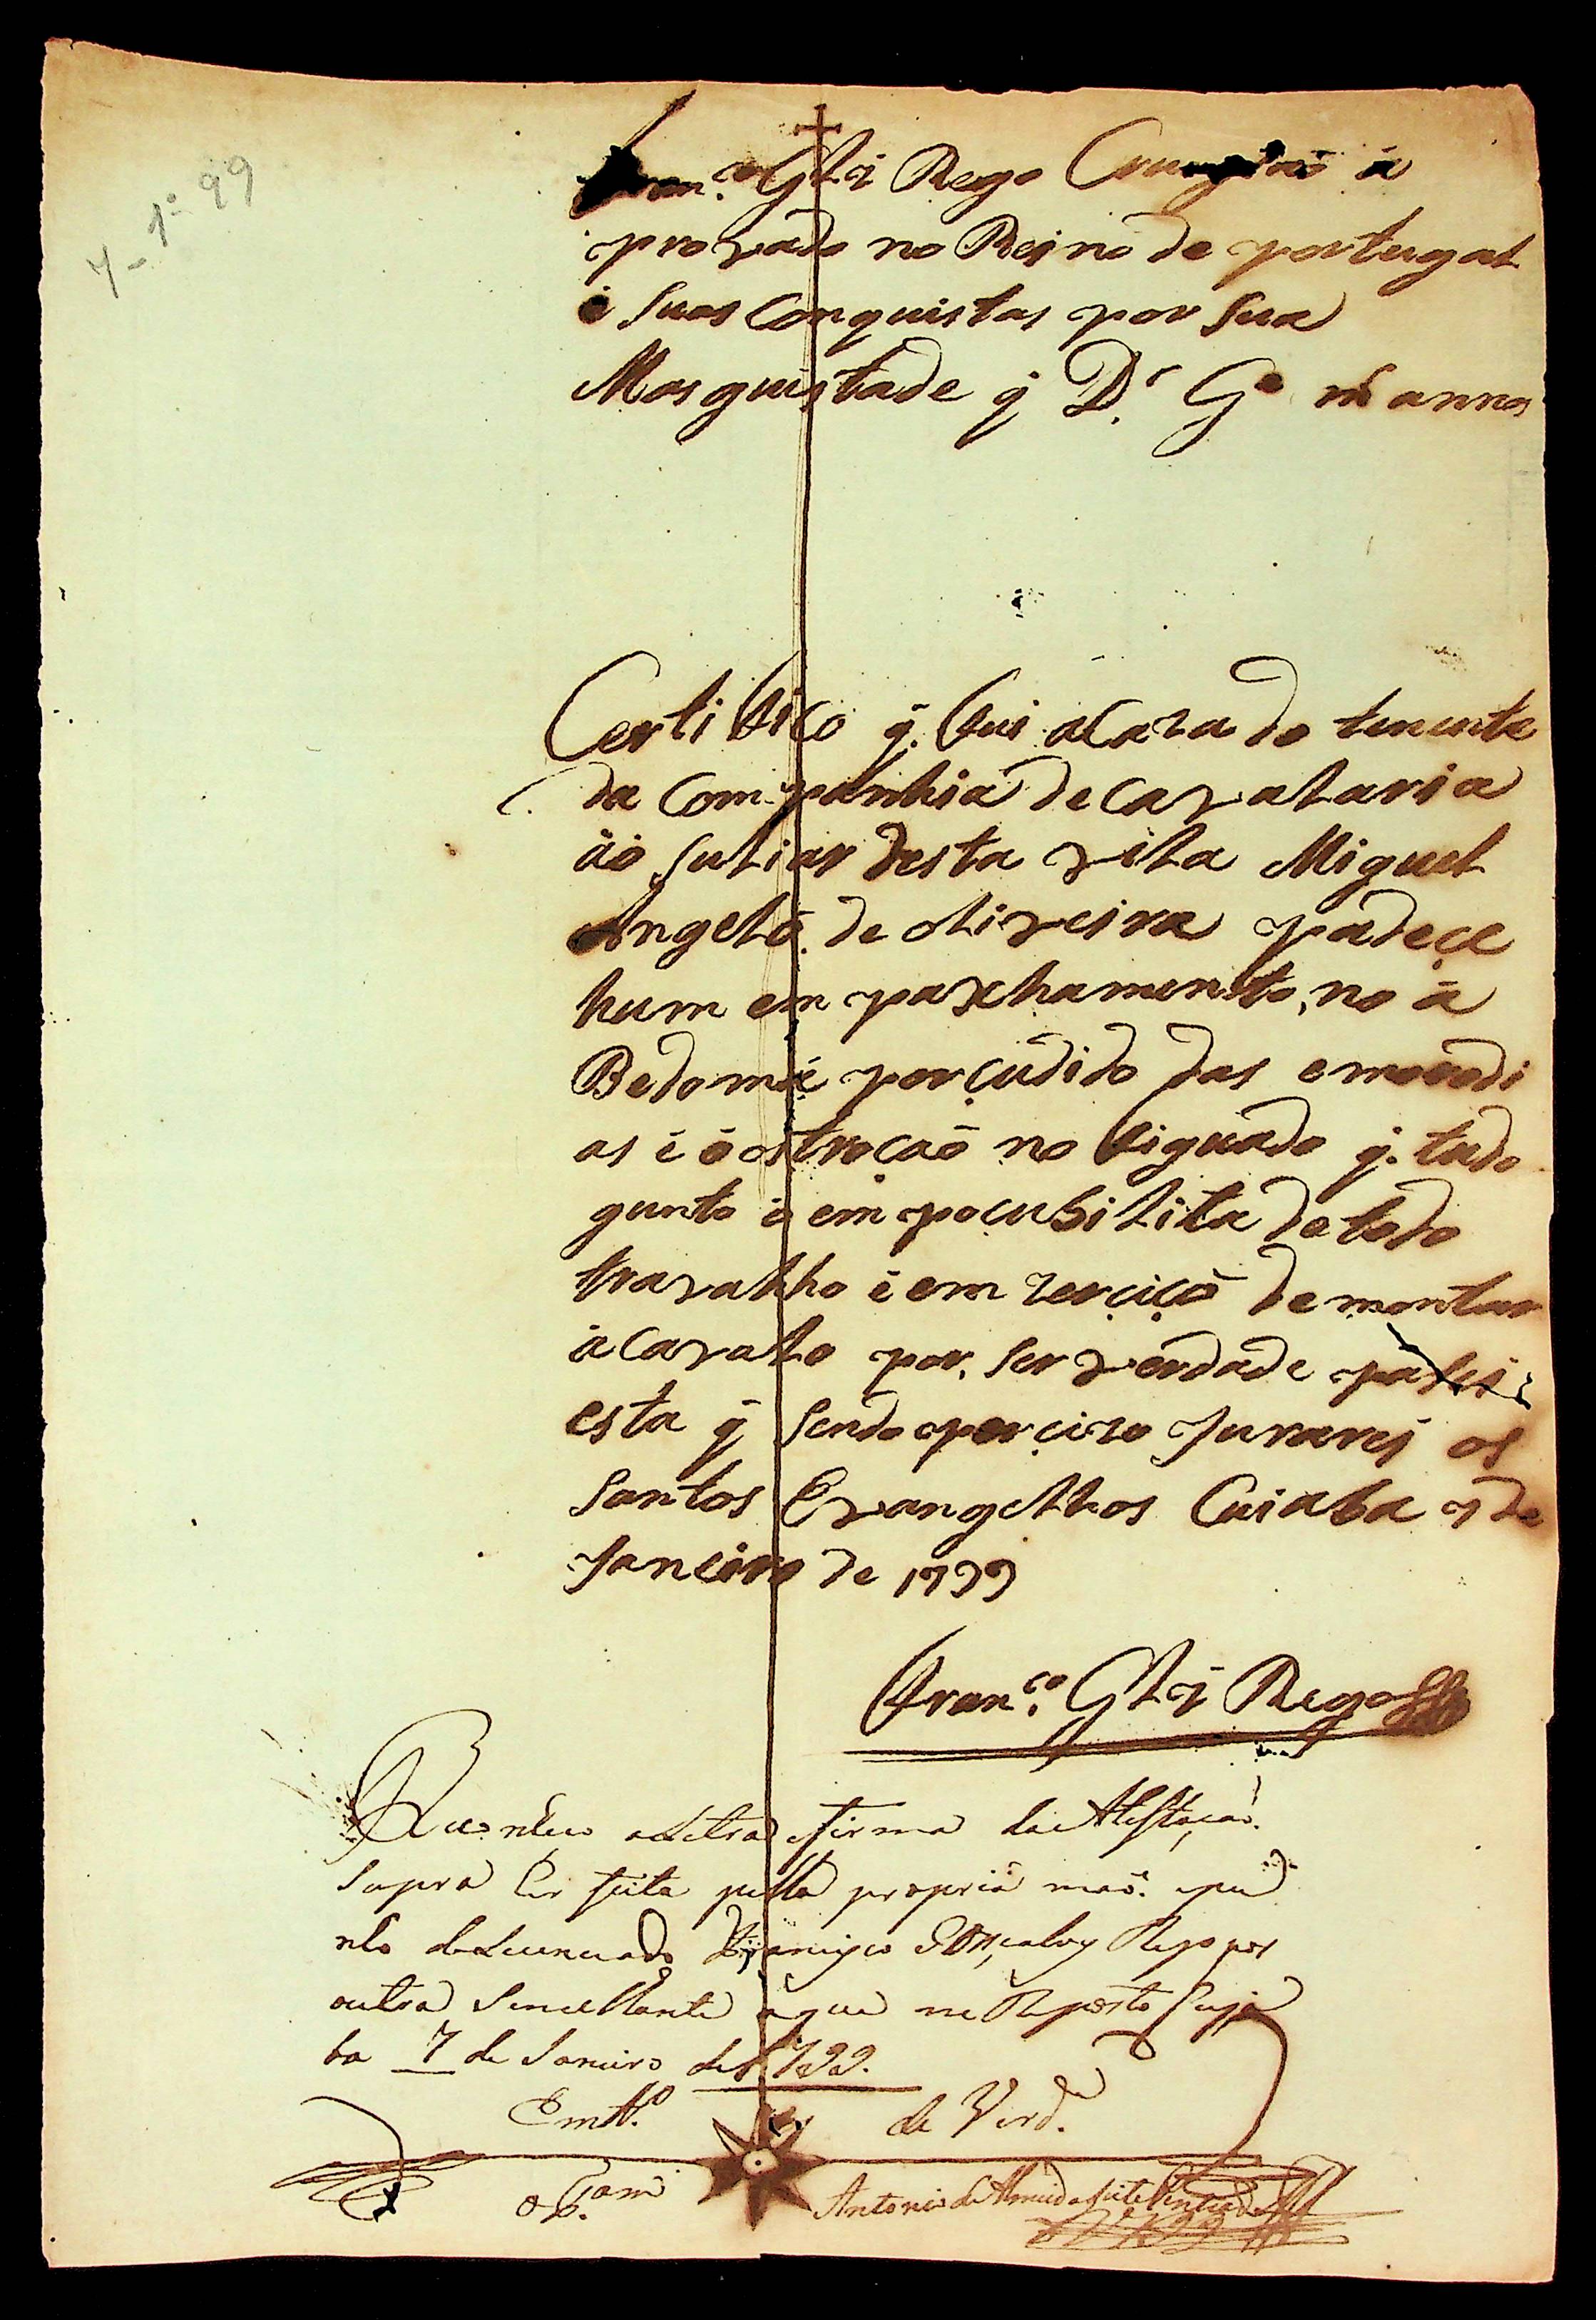 7-1º-99
Fran.co Glz Rego Cirurgiaõ á
provado no Reino de portugal
é Suas Comquistas por Sua
Masguistade q̃ D.s G.e m.s annos
Certifico q̃. fui aCaza do tenente
da Companhia de Cavalaria
áó Siliar desta vila Miguel
Angelo de oliveira padece
hum em paxhamento, no á
Bedomé porçudido das emorodi
as é óostrocaõ no figuado q̃. tudo
gunto ó em pocubilita de todo
travalho é em zerciçõ de montar
áCavalo por, Ser verdade pasei
esta q̃ Sendo perçizo Jurarej os
Santos Evangelhos Cuiaba 7 de
Janeiro de 1799
Fran.co Glz Rego
Reconheço aLetra e firma da Atestaçaõ.
Supra Ser feita pella propria maõ. e pu
nho do Lecenciado Francisco Gonçalvez Rego por
outra Semelhante aque me Reporto Cuja
ba 7 de Janeiro de 1799.
Em tt.º de Verd.e
Antonio de Almeida Leite Penteado